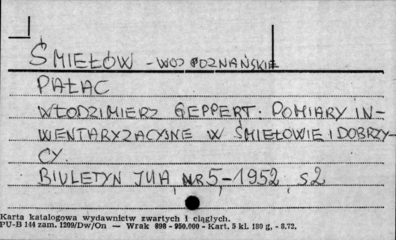 ŚMIEŁÓW - WOJ POZNAŃSKIE
PAŁAC
WŁODZIMIERZ GEPPERT: POMIARY IN-
WENTARYZACYJNE W ŚMIEŁOWIE I DOBRZY-
CY.
BIULETYN IUA, NR 5, - 1952, S2
Karta katalogowa wydawnictw zwartych i ciągłych.
PU-B 144 zam. 1209/Dw/On — Wrak 898 - 950.000 - Kart. 5 kl. 180 g. - 8.72.